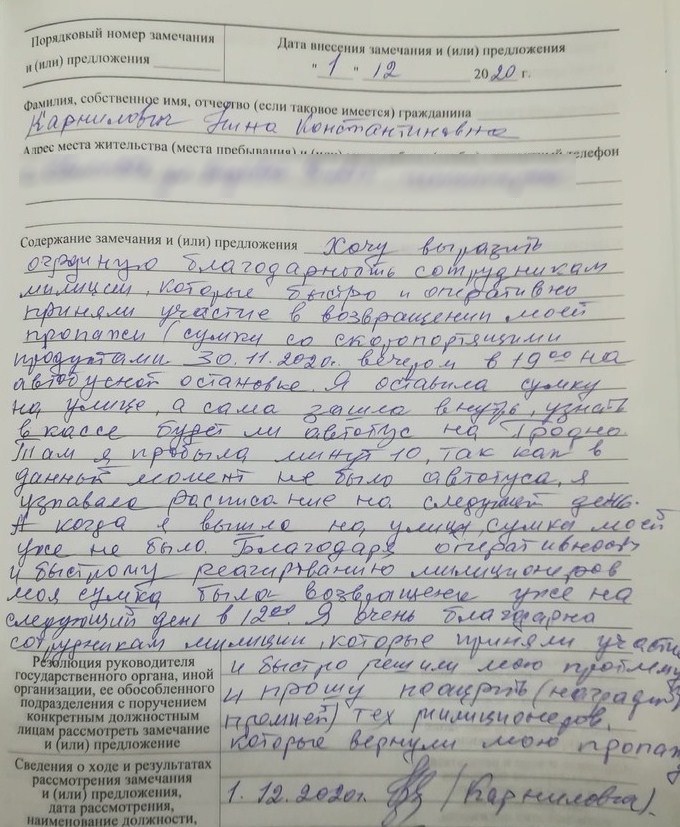 Порядковый номер замечания
и (или) предложения
Дата внесения замечания и (или) предложения
"1" 12 2020 г.
Фамилия, собственное имя, отчество (если таковое имеется) гражданина
Карнилович Нина Константиновна
Адрес места жительства (места пребывания) и (или) телефон
Содержание замечания и (или) предложения Хочу выразить
огромную благодарность сотрудникам
милиции, которые быстро и оперативно
приняли участие в возвращении моей
пропажи (сумки со скоропортящими
продуктами 30.11.2020г. вечером в 19 00 на
автобусной остановке. Я оставила сумку
на улице, а сама зашла внутрь, узнать
в кассе будет ли автобус на Гродно.
Там я пробыла минут 10, так как в
данный момент не было автобуса, я
узнавала расписание на следующей день.
А когда я вышла на улицу, сумки моей
уже не было. Благодаря оперативности
и быстрому реагированию милиционеров
моя сумка была возвращена уже на
следующий день в 12 00. Я очень благодарна
сотрудникам милиции, которые приняли участи
и быстро решили мою проблему
и прошу поощрить (наградить
премией) тех милиционеров,
которые вернули мою пропаж
Резолюция руководителя
государственного органа, иной
организации, ее обособленного
подразделения с поручением
конкретным должностным
лицам рассмотреть замечание
и (или) предложение
Сведения о ходе и результатах
рассмотрения замечания
и (или) предложения,
дата рассмотрения,
наименование должности,
1.12.2020г. (Карнилович).